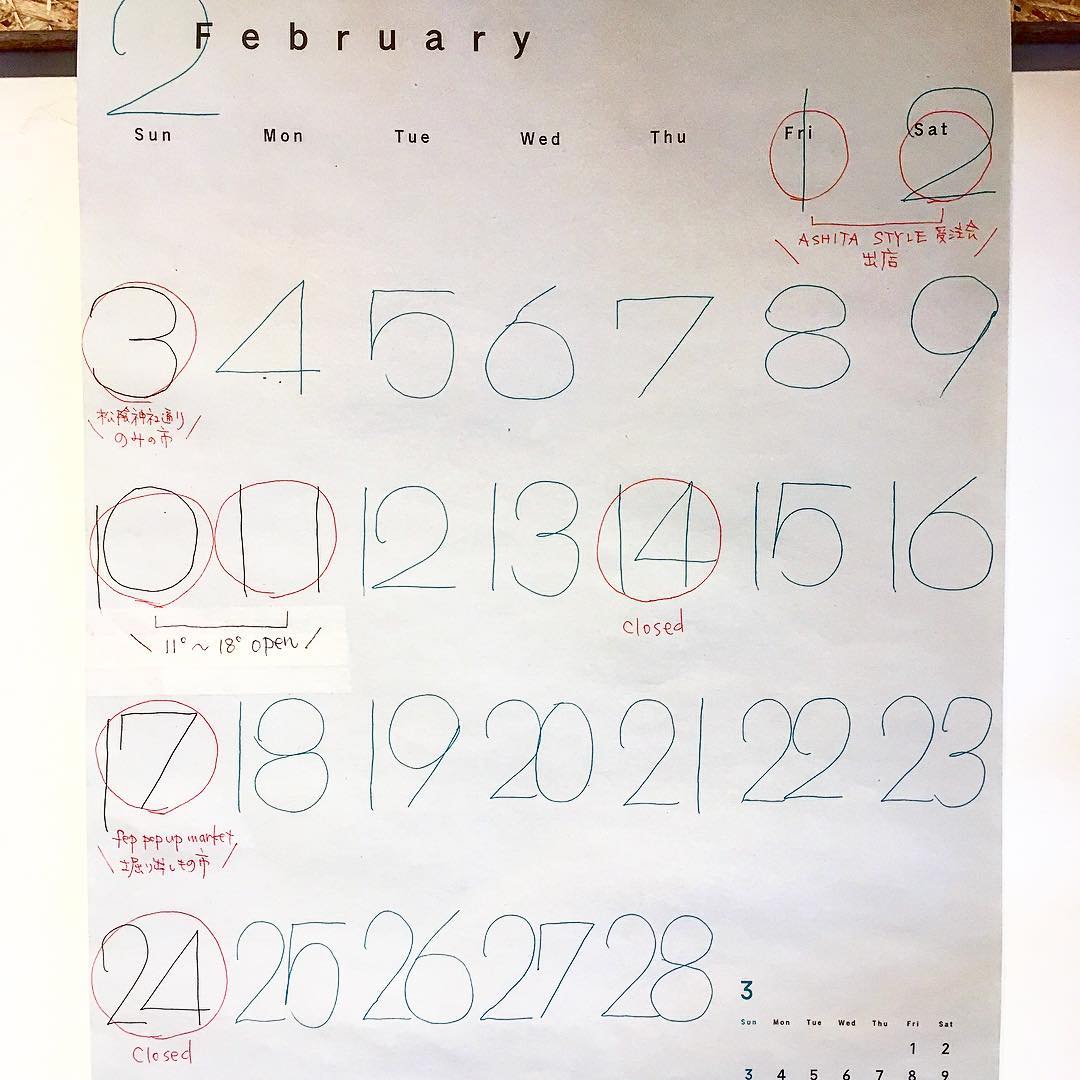 2 February
Sun Mon Tue Wed Thu Fri Sat
1 2
\ ASHITA STYLE 受注会 /
出店
3 4 5 6 7 8 9
\ 松陰神社通り /
のみの市
10 11 12 13 14 15 16
\ 11°〜18° open /
closed
17 18 19 20 21 22 23
fep pop up market
\ 掘り出しもの市 /
24 25 26 27 28
Closed
3
Sun Mon Tue Wed Thu Fri Sat
1 2
3 4 5 6 7 8 9